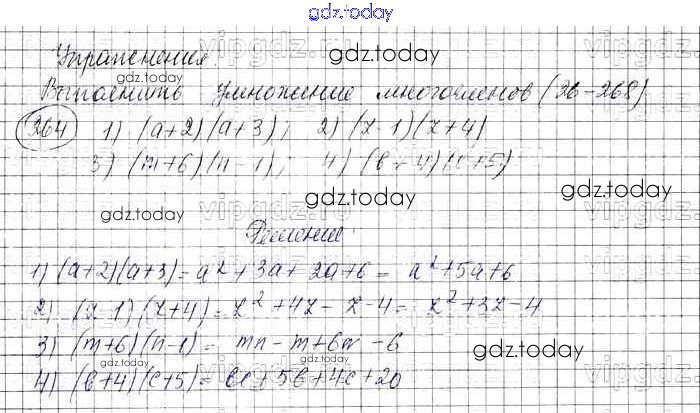 gdz.today
Упражнения
gdz.today
gdz.today
Выполнить умножение многочленов (26-268)
264 1) (a+2)(a+3); 2) (z-1)(z+4)
3) (m+6)(n-1); 4) (b+4)(c+5)
gdz.today
gdz.today
gdz.today
Решение
1) (a+2)(a+3)=a²+3a+2a+6= a²+5a+6
2) (z-1)(z+4)=z²+4z-z-4= z²+3z-4
3) (m+6)(n-1)= mn-m+6n-6
gdz.today
gdz.today
gdz.today
4) (b+4)(c+5)= bc+5b+4c+20